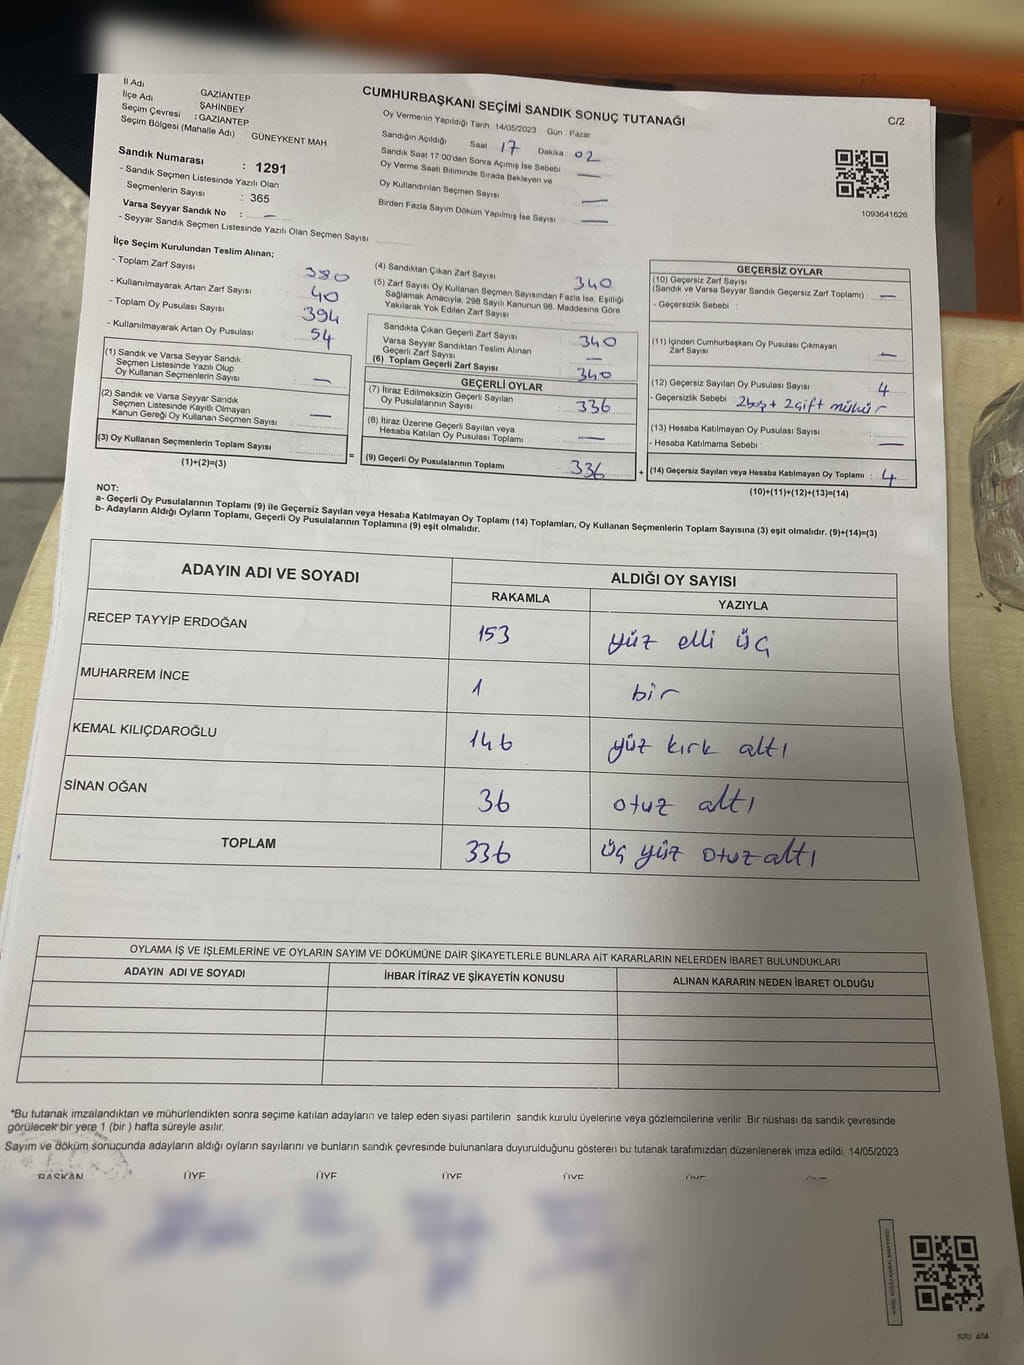 İl Adı
GAZİANTEP
İlçe Adı
ŞAHİNBEY
Seçim Çevresi : GAZİANTEP
Seçim Bölgesi (Mahalle Adı) : GÜNEYKENT MAH
CUMHURBAŞKANI SEÇİMİ SANDIK SONUÇ TUTANAĞI
C/2
Oy Vermenin Yapıldığı Tarih 14/05/2023 Gün : Pazar
Sandığın Açıldığı Saat 17 Dakika 02
Sandık Saat 17:00'den Sonra Açımış İse Sebebi : —
Oy Verme Saati Bitiminde Sırada Bekleyen ve
Oy Kullandırılan Seçmen Sayısı —
Birden Fazla Sayım Döküm Yapılmış İse Sayısı : —
1093641626
Sandık Numarası : 1291
- Sandık Seçmen Listesinde Yazılı Olan
Seçmenlerin Sayısı : 365
Varsa Seyyar Sandık No : —
- Seyyar Sandık Seçmen Listesinde Yazılı Olan Seçmen Sayısı
İlçe Seçim Kurulundan Teslim Alınan;
- Toplam Zarf Sayısı 380
- Kullanılmayarak Artan Zarf Sayısı 40
- Toplam Oy Pusulası Sayısı 394
- Kullanılmayarak Artan Oy Pusulası 54
(1) Sandık ve Varsa Seyyar Sandık
Seçmen Listesinde Yazılı Olup
Oy Kullanan Seçmenlerin Sayısı : —
(2) Sandık ve Varsa Seyyar Sandık
Seçmen Listesinde Kayıtlı Olmayan
Kanun Gereği Oy Kullanan Seçmen Sayısı : —
(3) Oy Kullanan Seçmenlerin Toplam Sayısı :
(1)+(2)=(3)
=
(4) Sandıktan Çıkan Zarf Sayısı 340
(5) Zarf Sayısı Oy Kullanan Seçmen Sayısından Fazla İse, Eşitliği
Sağlamak Amacıyla, 298 Sayılı Kanunun 98. Maddesine Göre
Yakılarak Yok Edilen Zarf Sayısı
Sandıkta Çıkan Geçerli Zarf Sayısı : 340
Varsa Seyyar Sandıktan Teslim Alınan
Geçerli Zarf Sayısı —
(6) Toplam Geçerli Zarf Sayısı : 340
GEÇERLİ OYLAR
(7) İtiraz Edilmeksizin Geçerli Sayılan
Oy Pusulalarının Sayısı : 336
(8) İtiraz Üzerine Geçerli Sayılan veya
Hesaba Katılan Oy Pusulası Toplamı : —
(9) Geçerli Oy Pusulalarının Toplamı : 336
+
GEÇERSİZ OYLAR
(10) Geçersiz Zarf Sayısı
(Sandık ve Varsa Seyyar Sandık Geçersiz Zarf Toplamı) : —
- Geçersizlik Sebebi :
(11) İçinden Cumhurbaşkanı Oy Pusulası Çıkmayan
Zarf Sayısı : —
(12) Geçersiz Sayılan Oy Pusulası Sayısı : 4
- Geçersizlik Sebebi : 2boş + 2çift mühür
(13) Hesaba Katılmayan Oy Pusulası Sayısı :
- Hesaba Katılmama Sebebi : —
(14) Geçersiz Sayılan veya Hesaba Katılmayan Oy Toplamı : 4
(10)+(11)+(12)+(13)=(14)
NOT:
a- Geçerli Oy Pusulalarının Toplamı (9) ile Geçersiz Sayılan veya Hesaba Katılmayan Oy Toplamı (14) Toplamları, Oy Kullanan Seçmenlerin Toplam Sayısına (3) eşit olmalıdır. (9)+(14)=(3)
b- Adayların Aldığı Oyların Toplamı, Geçerli Oy Pusulalarının Toplamına (9) eşit olmalıdır.
ADAYIN ADI VE SOYADI
ALDIĞI OY SAYISI
RAKAMLA YAZIYLA
RECEP TAYYİP ERDOĞAN 153 yüz elli üç
MUHARREM İNCE 1 bir
KEMAL KILIÇDAROĞLU 146 yüz kırk altı
SİNAN OĞAN 36 otuz altı
TOPLAM 336 üç yüz otuz altı
OYLAMA İŞ VE İŞLEMLERİNE VE OYLARIN SAYIM VE DÖKÜMÜNE DAİR ŞİKAYETLERLE BUNLARA AİT KARARLARIN NELERDEN İBARET BULUNDUKLARI
ADAYIN ADI VE SOYADI İHBAR İTİRAZ VE ŞİKAYETİN KONUSU ALINAN KARARIN NEDEN İBARET OLDUĞU
*Bu tutanak imzalandıktan ve mühürlendikten sonra seçime katılan adayların ve talep eden siyasi partilerin sandık kurulu üyelerine veya gözlemcilerine verilir. Bir nüshası da sandık çevresinde
görülecek bir yere 1 (bir ) hafta süreyle asılır.
Sayım ve döküm sonucunda adayların aldığı oyların sayılarını ve bunların sandık çevresinde bulunanlara duyurulduğunu gösteren bu tutanak tarafımızdan düzenlenerek imza edildi. 14/05/2023
BAŞKAN ÜYE ÜYE ÜYE ÜYE ÜYE